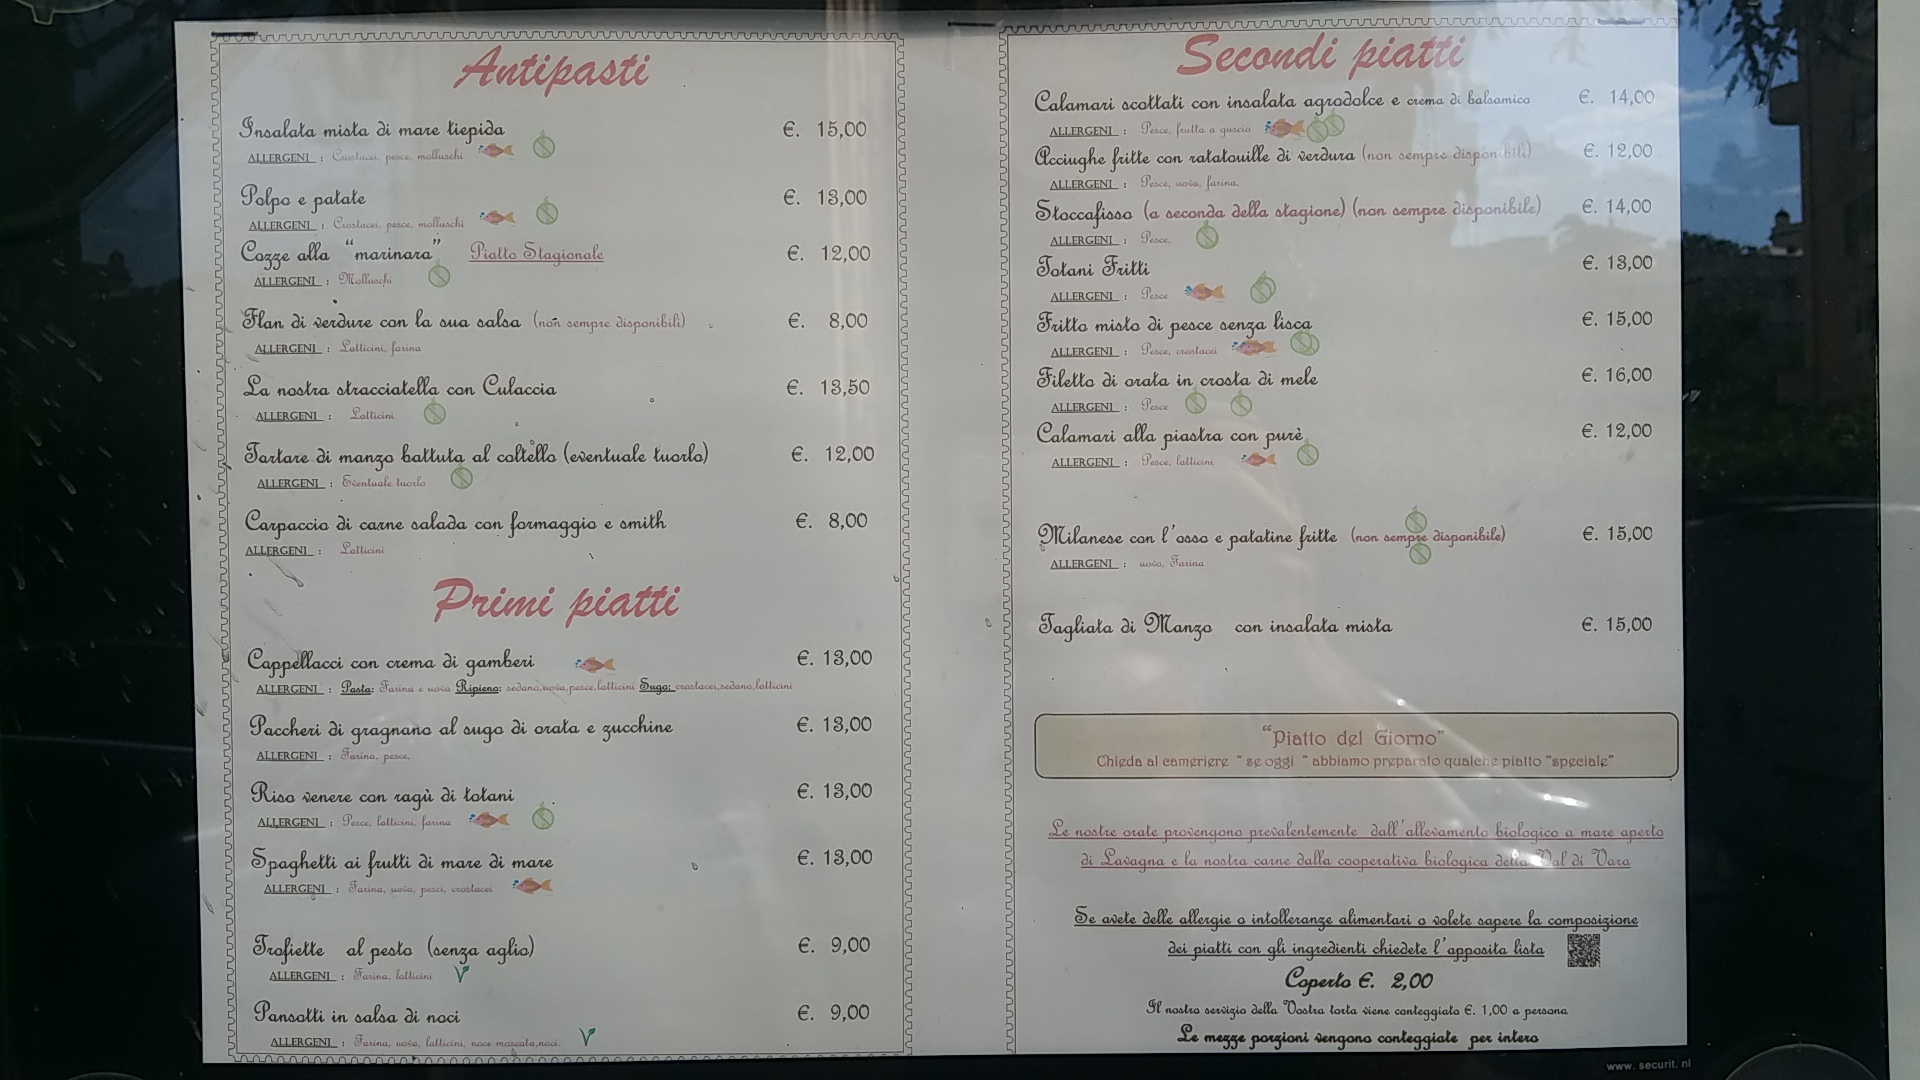 Antipasti
Insalata mista di mare tiepida €. 15,00
ALLERGENI : Crostacei, pesce, molluschi
Polpo e patate €. 13,00
ALLERGENI : Crostacei, pesce, molluschi
Cozze alla “marinara” Piatto Stagionale €. 12,00
ALLERGENI : Molluschi
Flan di verdure con la sua salsa (non sempre disponibili) €. 8,00
ALLERGENI : Latticini, farina
La nostra stracciatella con Culaccia €. 13,50
ALLERGENI : Latticini
Tartare di manzo battuta al coltello (eventuale tuorlo) €. 12,00
ALLERGENI : Eventuale tuorlo
Carpaccio di carne salada con formaggio e smith €. 8,00
ALLERGENI : Latticini
Primi piatti
Cappellacci con crema di gamberi €. 13,00
ALLERGENI : Pasta: Farina e uova Ripieno: sedano,uova,pesce,latticini Sugo: crostacei,sedano,latticini
Paccheri di gragnano al sugo di orata e zucchine €. 13,00
ALLERGENI : Farina, pesce,
Riso venere con ragù di totani €. 13,00
ALLERGENI : Pesce, latticini, farina
Spaghetti ai frutti di mare di mare €. 13,00
ALLERGENI : Farina, uova, pesci, crostacei
Trofiette al pesto (senza aglio) €. 9,00
ALLERGENI : Farina, latticini
Pansotti in salsa di noci €. 9,00
ALLERGENI : Farina, uova, latticini, noce moscata,noci.
Secondi piatti
Calamari scottati con insalata agrodolce e crema di balsamico €. 14,00
ALLERGENI : Pesce, frutta a guscio
Acciughe fritte con ratatouille di verdura (non sempre disponibili) €. 12,00
ALLERGENI : Pesce, uova, farina.
Stoccafisso (a seconda della stagione) (non sempre disponibile) €. 14,00
ALLERGENI : Pesce,
Totani Fritti €. 13,00
ALLERGENI : Pesce
Fritto misto di pesce senza lisca €. 15,00
ALLERGENI : Pesce, crostacei
Filetto di orata in crosta di mele €. 16,00
ALLERGENI : Pesce
Calamari alla piastra con purè €. 12,00
ALLERGENI : Pesce, latticini
Milanese con l'osso e patatine fritte (non sempre disponibile) €. 15,00
ALLERGENI : uova, Farina
Tagliata di Manzo con insalata mista €. 15,00
“Piatto del Giorno”
Chieda al cameriere “ se oggi “ abbiamo preparato qualche piatto “speciale”
Le nostre orate provengono prevalentemente dall'allevamento biologico a mare aperto
di Lavagna e la nostra carne dalla cooperativa biologica della Val di Vara
Se avete delle allergie o intolleranze alimentari o volete sapere la composizione
dei piatti con gli ingredienti chiedete l'apposita lista
Coperto €. 2,00
Il nostro servizio della Vostra torta viene conteggiato €. 1,00 a persona
Le mezze porzioni vengono conteggiate per intero
www.securit.nl